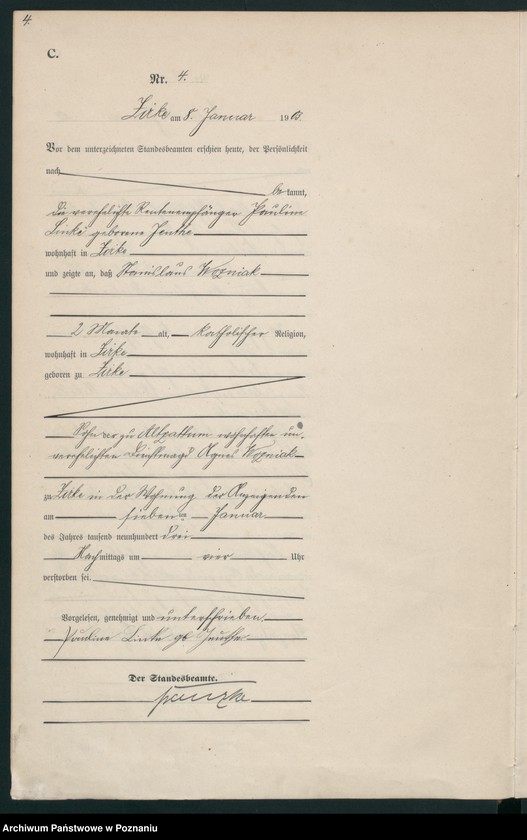 4.
C.
Nr. 4.
Zirke am 8. Januar 1903.
Vor dem unterzeichneten Standesbeamten erschien heute, der Persönlichkeit
nach
be kannt,
die verehelichte Rentenempfänger Pauline
Linke geborene Jenthe
wohnhaft in Zirke
und zeigte an, daß Stanislaus Wozniak
2 Monate alt, katholischer Religion,
wohnhaft in Zirke
geboren zu Zirke
Sohn der zu Altzattum wohnhaften un-
verehelichten Dienstmagd Agnes Wozniak
zu Zirke in der Wohnung der Anzeigenden
am sieben ten Januar
des Jahres tausend neunhundert drei
Nach mittags um vier Uhr
verstorben sei.
Vorgelesen, genehmigt und unterschrieben
Pauline Linke gb Jenthe
Der Standesbeamte.
Archiwum Państwowe w Poznaniu